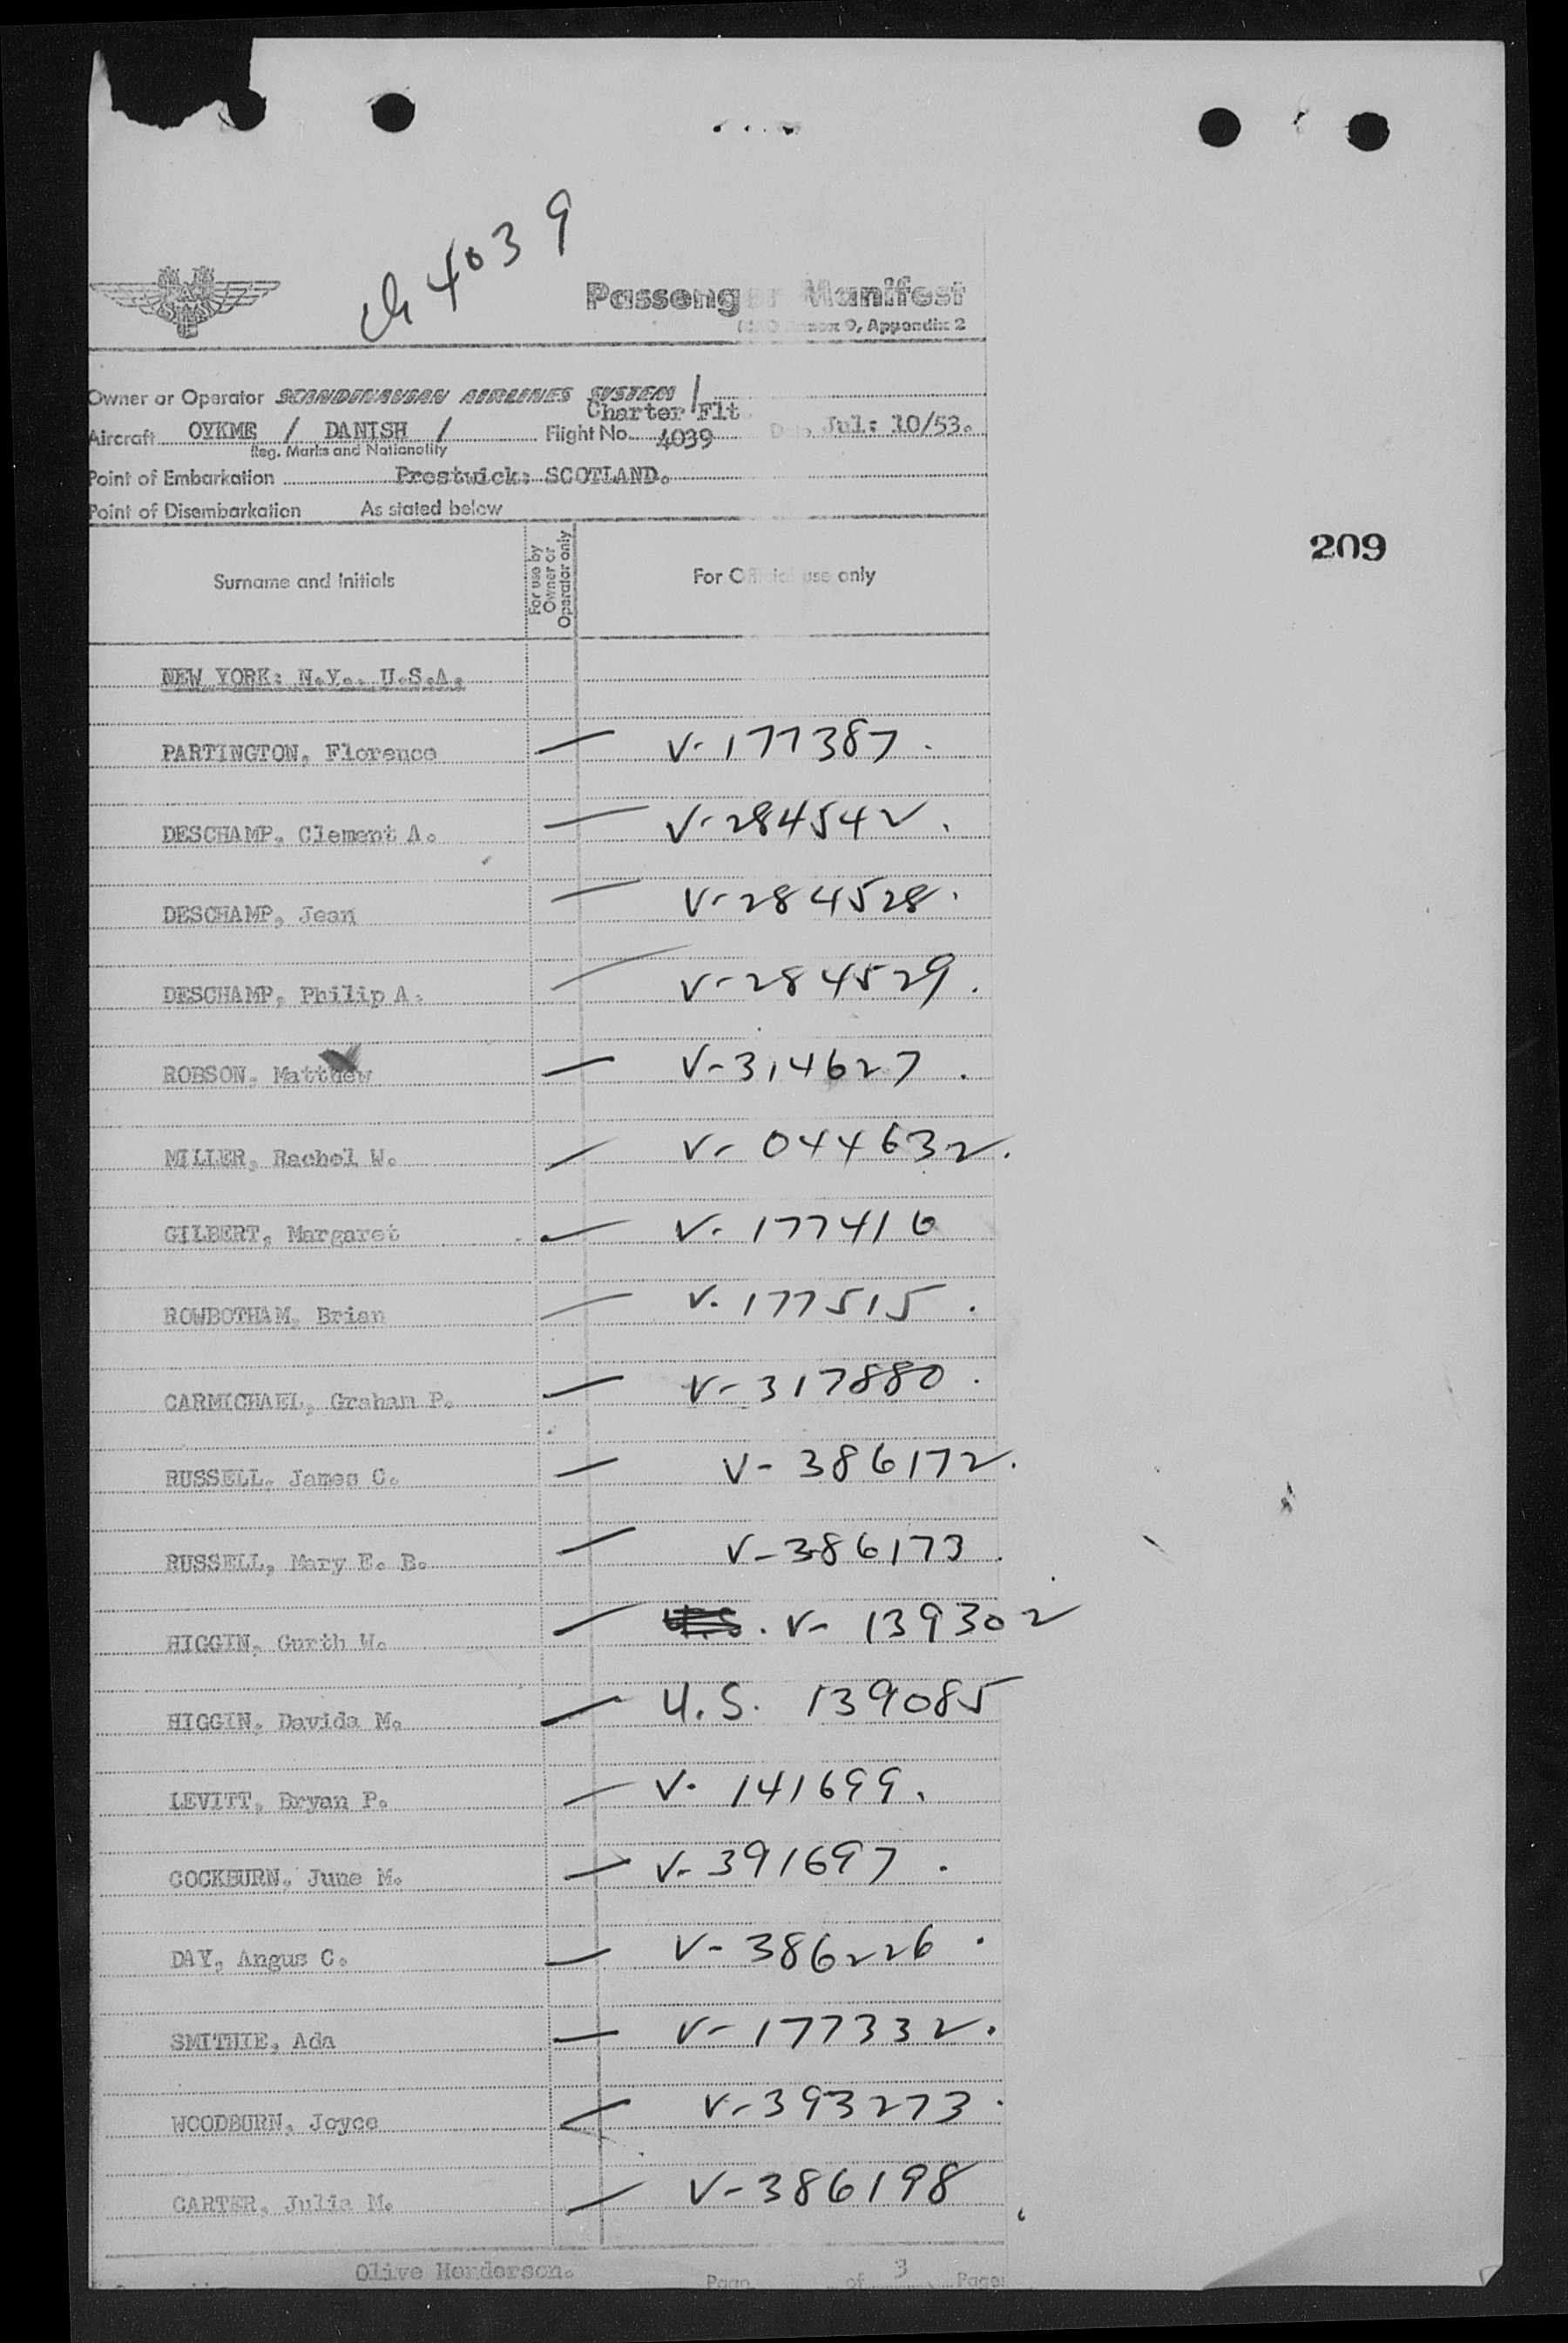 ch 4039
Passenger Manifest
ICAO Annex 9, Appendix 2
Owner or Operator SCANDINAVIAN AIRLINES SYSTEM /
Charter Flt
Aircraft OYKME / DANISH / Flight No. 4039 Date Jul: 10/53.
Reg. Marks and Nationality
Point of Embarkation Prestwick: SCOTLAND.
Point of Disembarkation As stated below
209
Surname and Initials For use by Owner or Operator only For Official use only
NEW YORK: N.Y.. U.S.A.
PARTINGTON, Florence — V-177387.
DESCHAMP, Clement A. — V-284542.
DESCHAMP, Jean — V-284528.
DESCHAMP, Philip A. — V-284529.
ROBSON, Matthew — V-314627.
MILLER, Rachel W. — V-044632.
GILBERT, Margaret — V-177416
ROWBOTHAM, Brian — V.177515.
CARMICHAEL, Graham P. — V-317880.
RUSSELL, James C. — V-386172.
RUSSELL, Mary E. B. — V-386173.
HIGGIN, Gurth W. — U.S. V-139302
HIGGIN, Davida M. — U.S. 139085
LEVITT, Bryan P. — V-141699.
COCKBURN, June M. — V-391697.
DAY, Angus C. — V-386226.
SMITHIE, Ada — V-177332.
WOODBURN, Joyce — V-393273.
CARTER, Julia M. — V-386198
Olive Henderson.
Page of 3 Pages